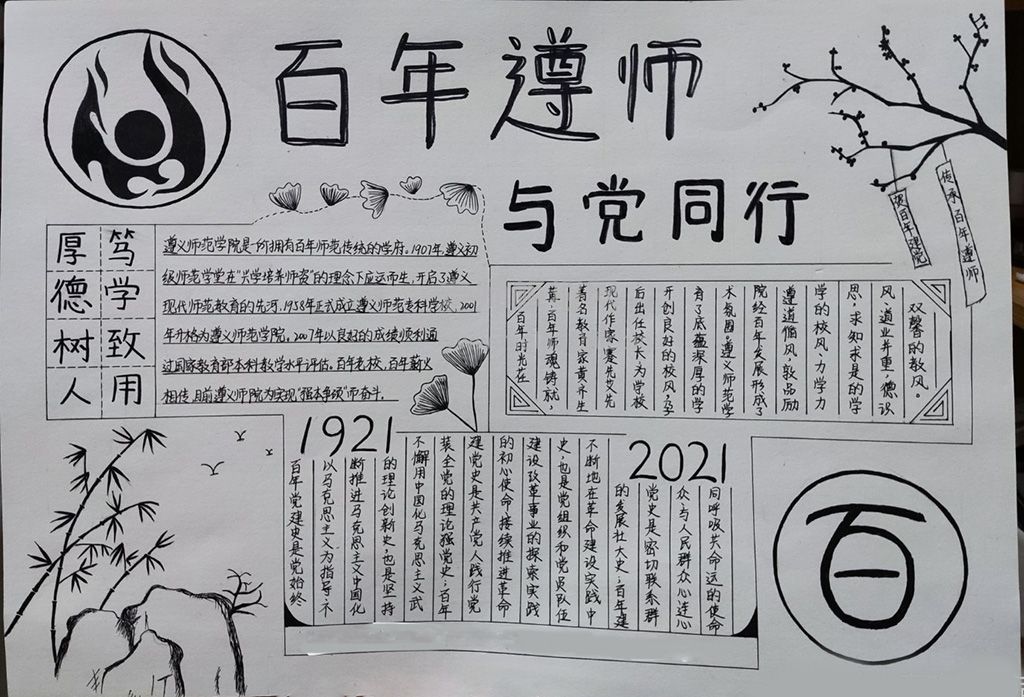 百年遵师
与党同行
传承百年遵师
庆百年建院
厚德树人
笃学致用
遵义师范学院是一所拥有百年师范传统的学府。1907年,遵义初
级师范学堂在"兴学培养师资"的理念下应运而生,开启了遵义
现代师范教育的先河,1958年正式成立遵义师范专科学校、2001
年升格为遵义师范学院。2007年以良好的成绩顺利通
过国家教育部本科教学水平评估。百年老校,百年薪火
相传,目前遵义师院为实现"强本争硕"而奋斗。
百年时光荏
苒,百年师魂铸就,
著名教育家黄齐生
现代作家蹇先艾先
后出任校长,为学校
开创良好的校风,孕
育了底蕴深厚的学
术氛围。遵义师范学
院经百年发展形成了
遵道循风,敦品励
学的校风、力学力
思,求知求是的学
风、道业并重,德识
双馨的教风。
1921
2021
百年党建史是党始终
以马克思主义为指导,不
断推进马克思主义中国化
的理论创新史,也是坚持
不懈用中国化马克思主义武
装全党的理论强党史;百年
建党史是共产党人践行党
的初心使命,接续推进革命
建设改革事业的探索实践
史,也是党组织和党员队伍
不断地在革命建设实践中
的发展壮大史;百年建
党史是密切联系群
众、与人民群众心连心
同呼吸共命运的使命
百